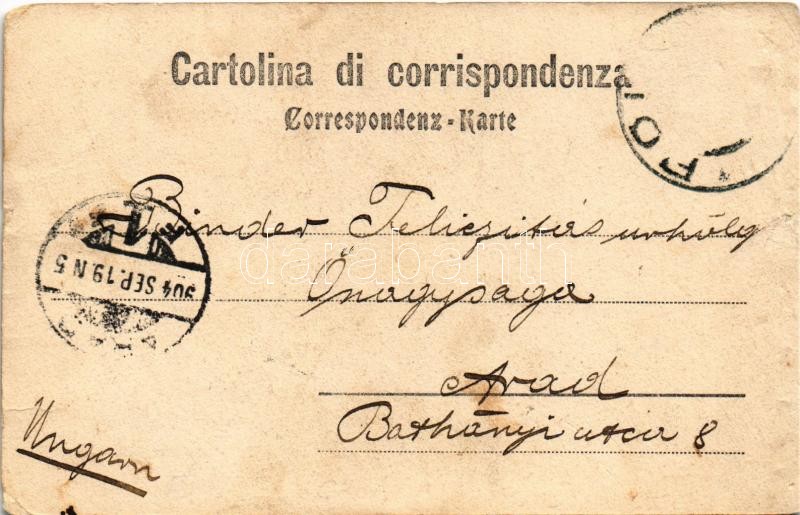 Cartolina di corrispondenza
Correspondenz-Karte
POL
Binder Feliczitás urhölg
Őnagysaga
Arad
Bathányi utca 8
Ungarn
904 SEP. 19. N 5
darabanth